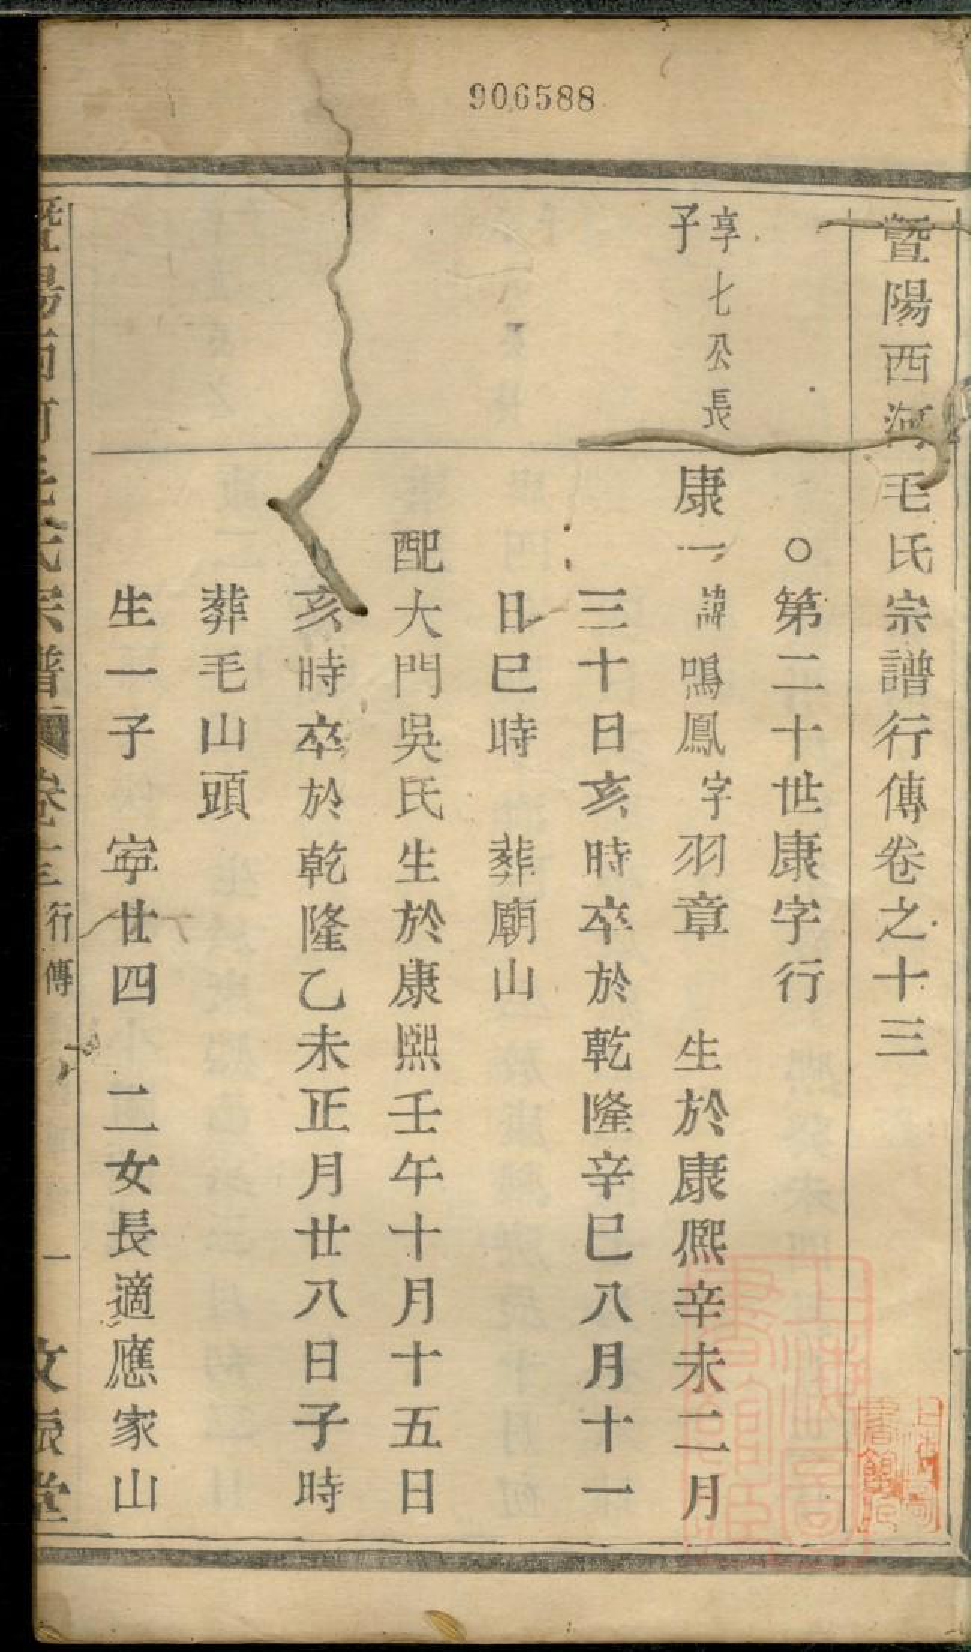 906588
暨陽西河毛氏宗譜行傳卷之十三
○第二十世康字行
享七公長
子
康一諱鳴鳳字羽章 生於康熙辛未二月
三十日亥時卒於乾隆辛巳八月十一
日巳時 葬廟山
配大門吳氏生於康熙壬午十月十五日
亥時卒於乾隆乙未正月廿八日子時
葬毛山頭
生一子 寧廿四 二女長適應家山
暨陽西河毛氏宗譜 卷十三 行傳 一